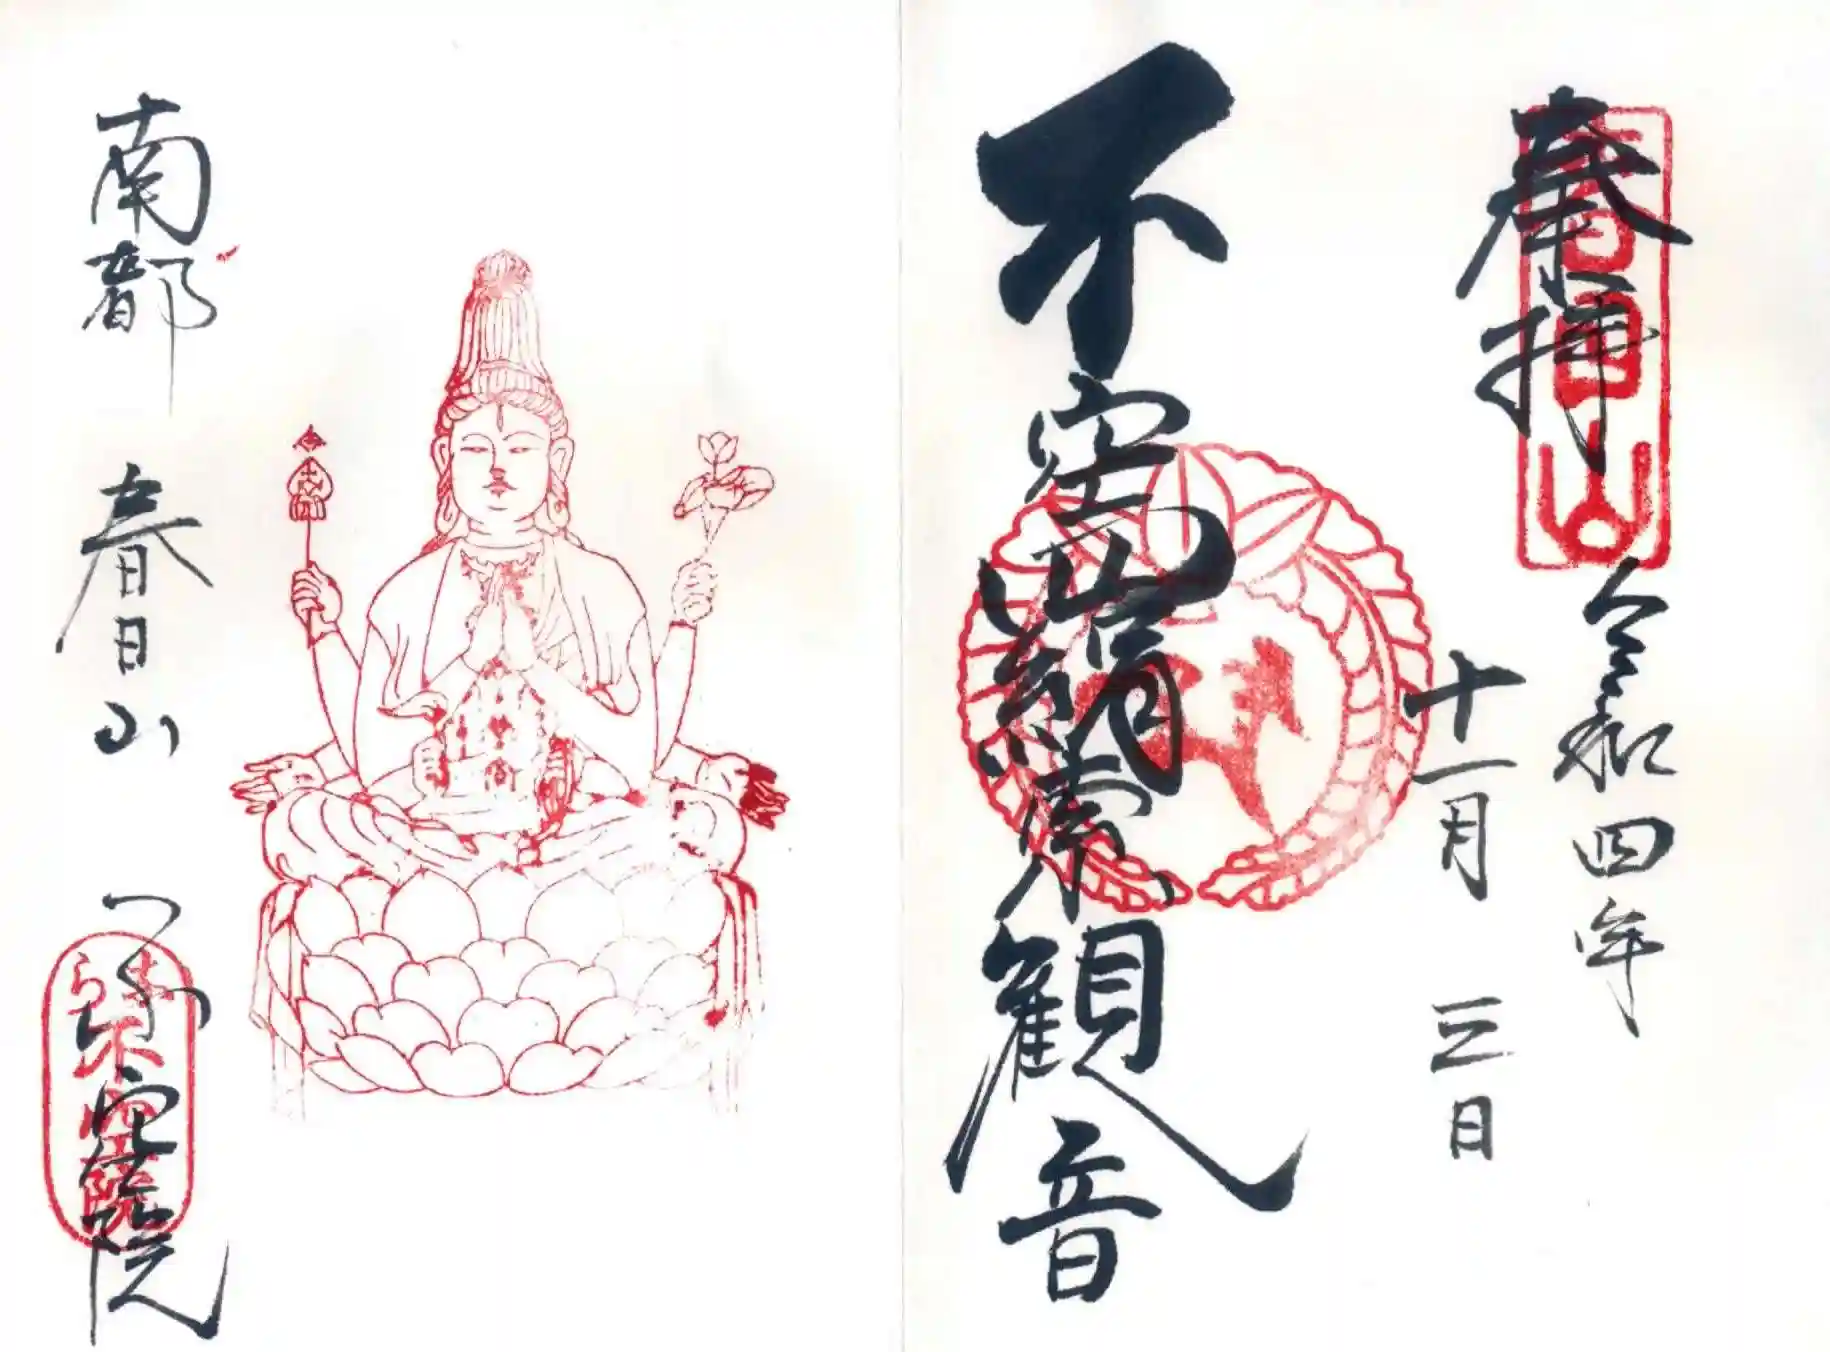 奉拝
春日山
令和四年
十一月三日
不空羂索観音
南都 春日山 不空院
なら
不空院